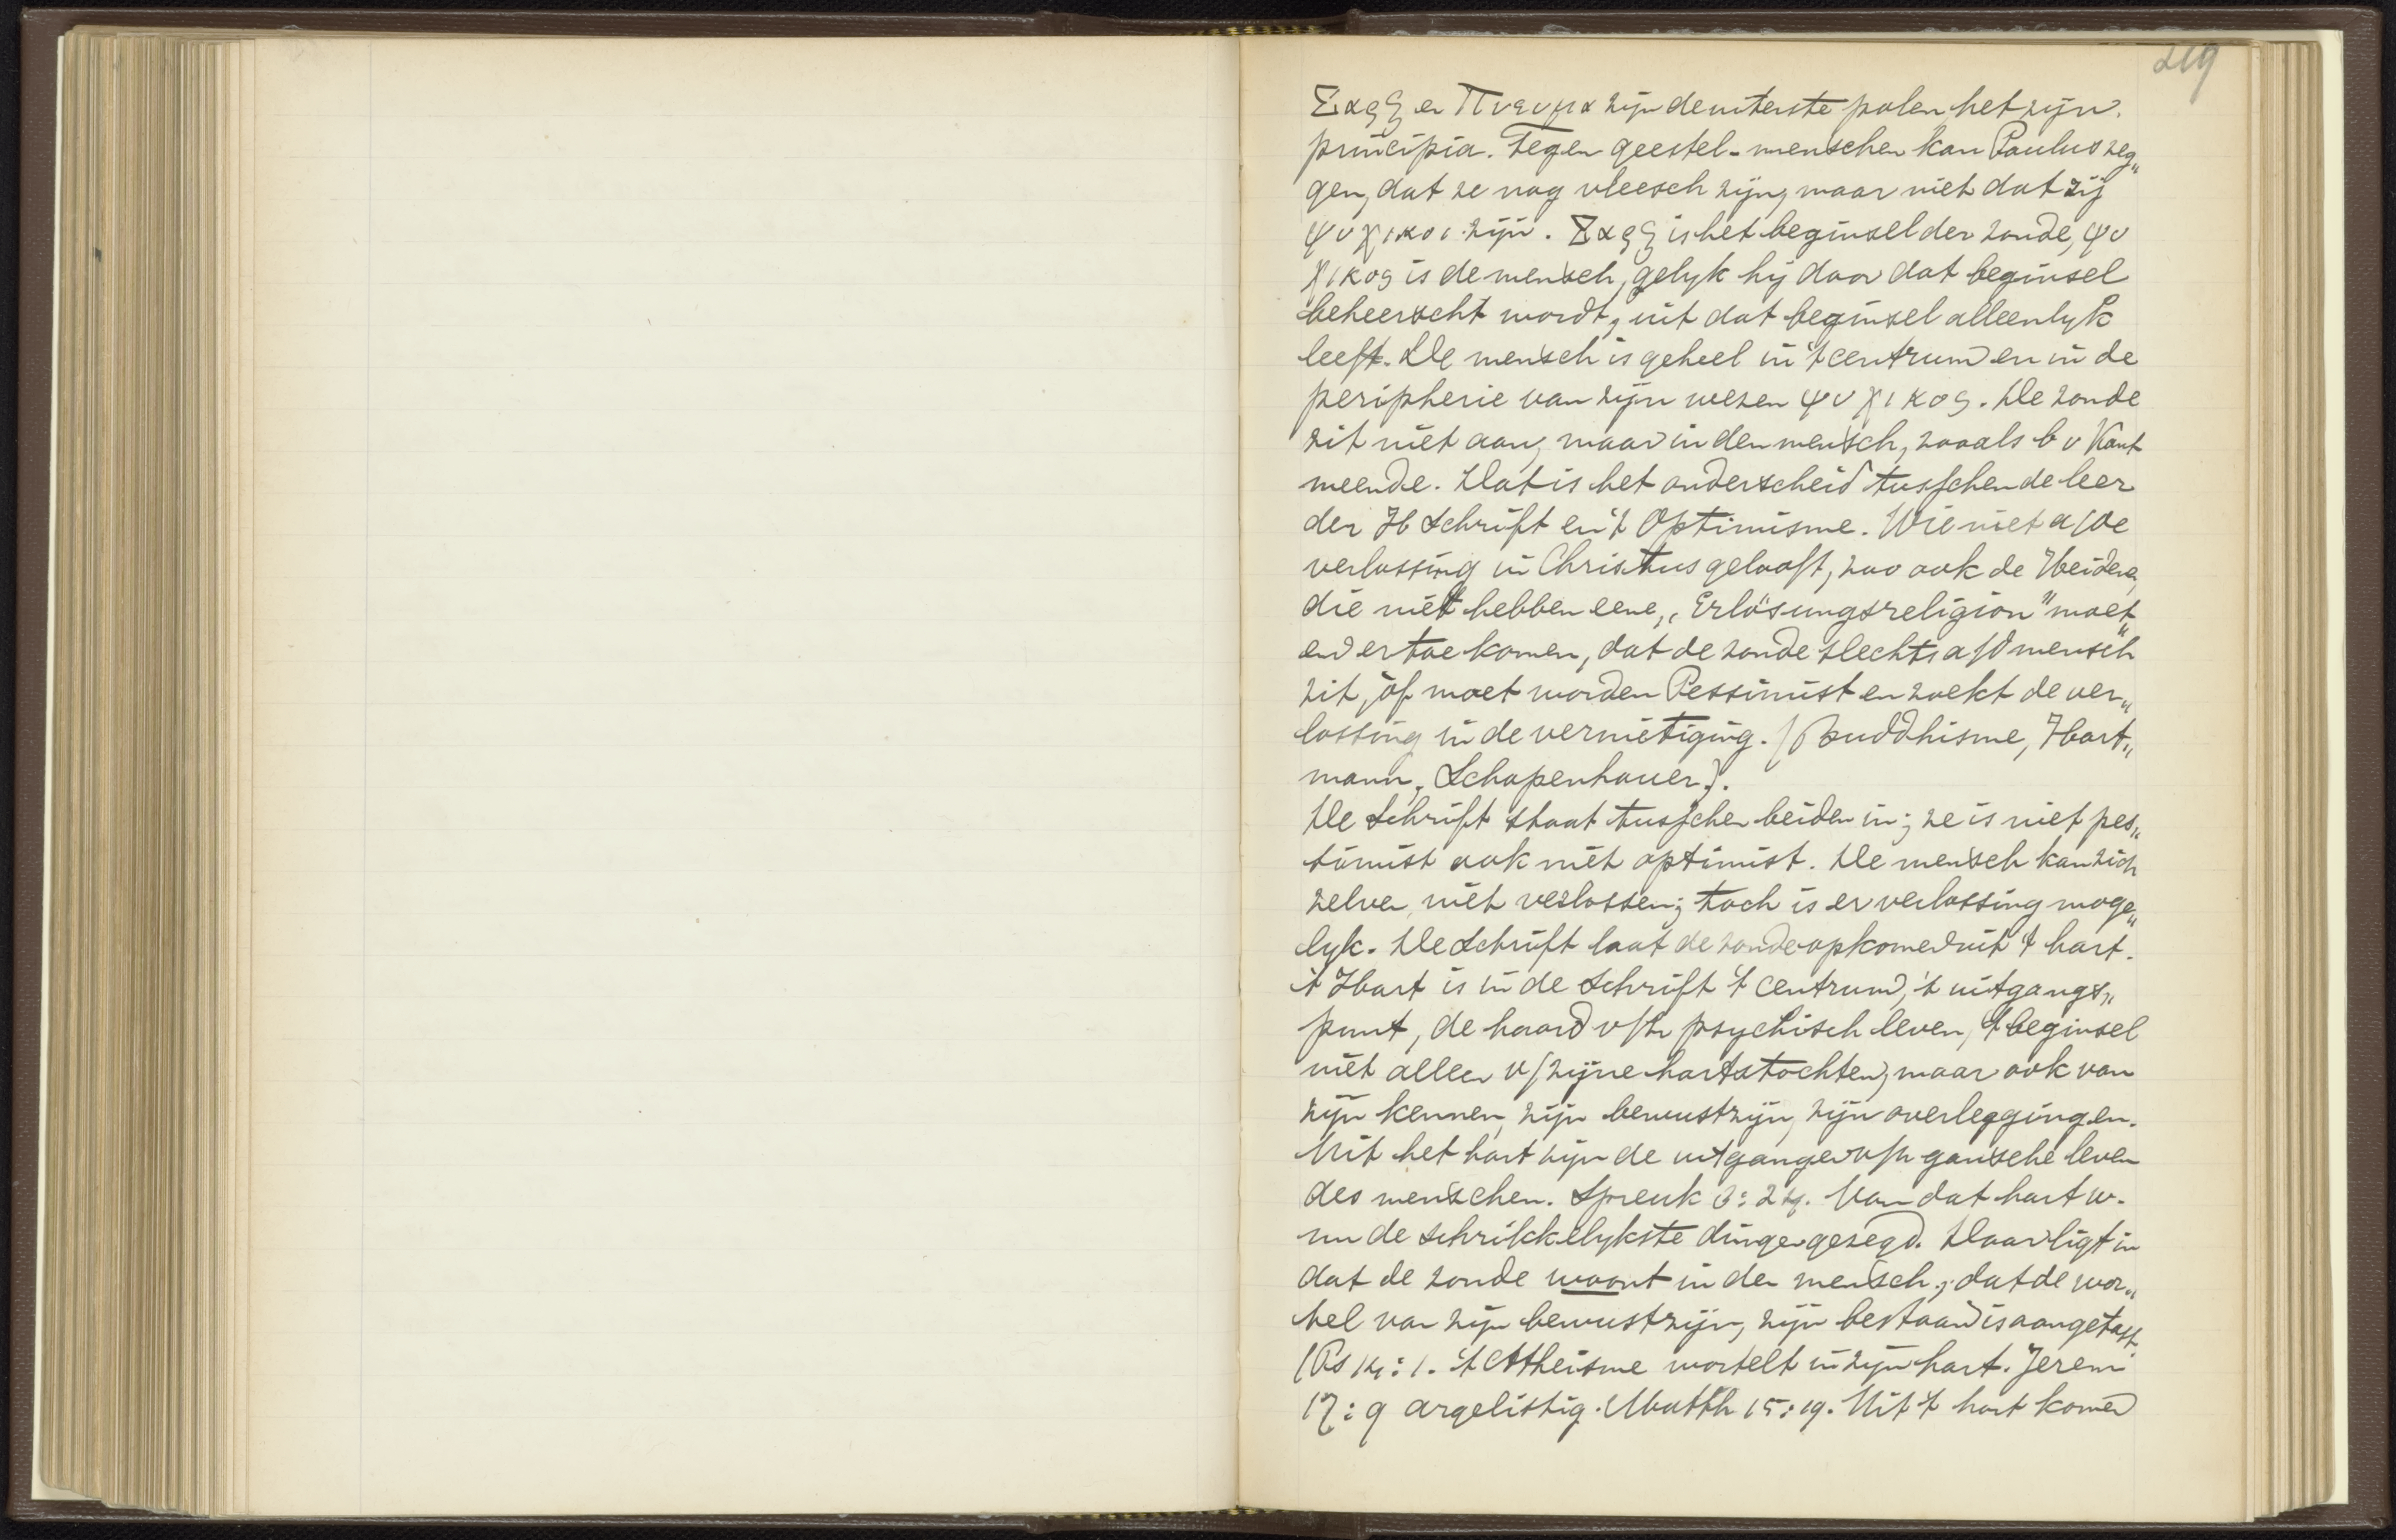 219
Σαρξ en Πνευμα zijn de uiterste polen het zijn.
principia. Tegen geestel-menschen kan Paulus zeg„
gen, dat ze nog vleesch zijn, maar niet dat zij
ψυχικοι zijn. Σαρξ is het beginsel der zonde, ψυ
χικος is de mensch, gelyk hij door dat beginsel
beheerscht wordt, uit dat beginsel alleenlyk
leeft. De mensch is geheel in 't centrum en in de
peripherie van zijn wezen ψυχικος. De zonde
zit niet aan, maar in den mensch, zooals b v Kant
meende. Dat is het onderscheid tusschen de leer
der H Schrift en 't Optimisme. Wie niet a/de
verlossing in Christus gelooft, zoo ook de Heidenen,
die niet hebben eene „Erlösungsreligion" moet„
en er toe komen, dat de zonde slechts a/d mensch
zit, óf moet worden Pessimist en zoekt de ver„
lossing in de vernietiging. (Buddhisme, Hart„
mann, Schopenhauer).
De Schrift staat tusschen beiden in; ze is niet pes„
simist ook niet optimist. De mensch kan zich
zelven niet verlossen; toch is er verlossing moge„
lyk. De Schrift laat de zonde opkomen uit 't hart.
't Hart is in de Schrift 't centrum, 't uitgangs„
punt, de haard v/h psychisch leven, 't beginsel
niet alleen v/zijne hartstochten, maar ook van
zijn kennen, zijn bewustzijn, zijn overleggingen.
Uit het hart zijn de uitgangen v/h gansche leven
des menschen. Spreuk 3:24. Van dat hart w.
nu de schrikkelykste dingen gezegd. Daar ligt in
dat de zonde woont in den mensch; dat de wor„
tel van zijn bewustzijn, zijn bestaan is aangetast.
(Ps 14:1. 't Atheisme wortelt in zijn hart. Jerem
17:9 argelistig. Matth 15:19. Uit 't hart komen